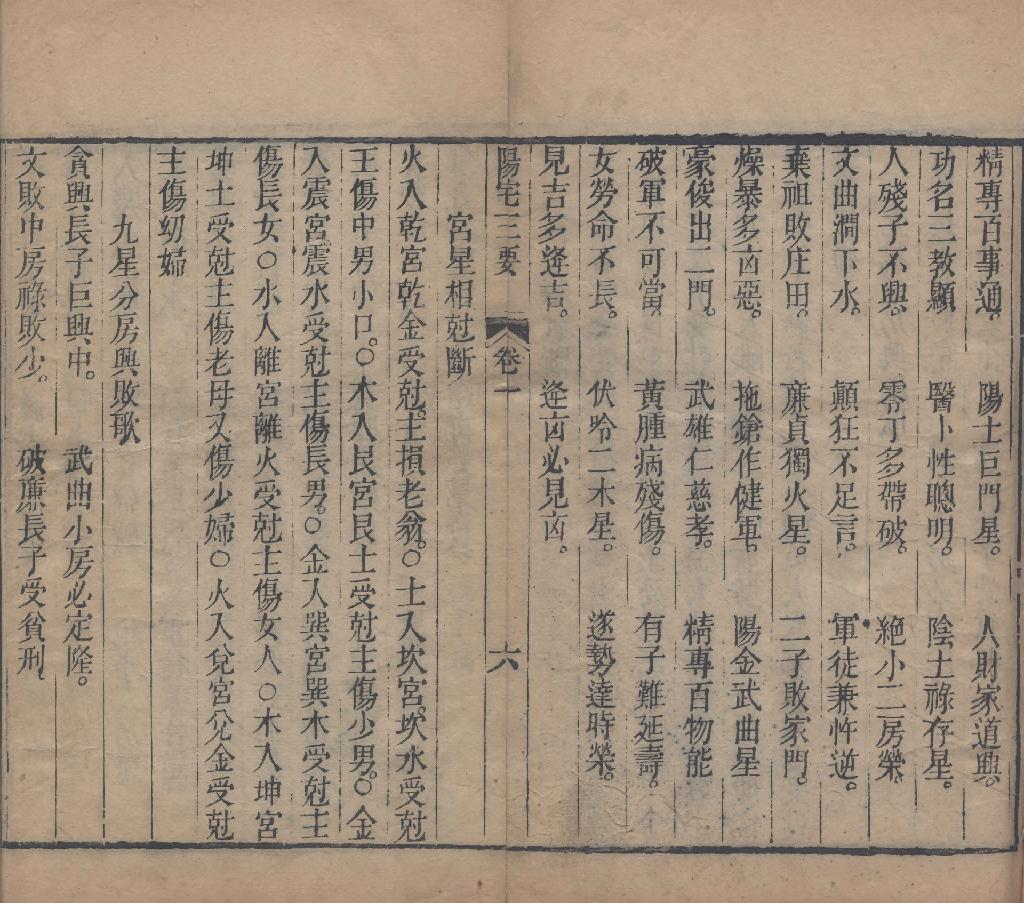 精專百事通。 陽土巨門星。 人財家道興。
功名三教顯 醫卜性聰明。 陰土祿存星。
人殘子不興。 零丁多帶破。 絕小二房榮。
文曲澗下水。 顛狂不足言。 軍徒兼忤逆。
棄祖敗庄田。 廉貞獨火星。 二子敗家門。
燥暴多凶惡。 拖鎗作健軍。 陽金武曲星
豪俊出二門。 武雄仁慈孝。 精專百物能
破軍不可當。 黃腫病殘傷。 有子難延壽。
女勞命不長。 伏吟二木星。 遂勢達時榮。
見吉多逢吉。 逢凶必見凶。
陽宅三要 卷一 六
宮星相尅斷
火入乾宮乾金受尅。主損老翁。○土入坎宮。坎水受尅
主傷中男小口。○木入艮宮艮土受尅主傷少男。○金
入震宮震水受尅主傷長男。○金入巽宮巽木受尅主
傷長女○水入離宮離火受尅主傷女人○木入坤宮
坤土受尅主傷老母又傷少婦○火入兌宮兌金受尅
主傷幼婦
九星分房興敗歌
貪興長子巨興中。 武曲小房必定隆。
文敗中房祿敗少。 破廉長子受貧刑。